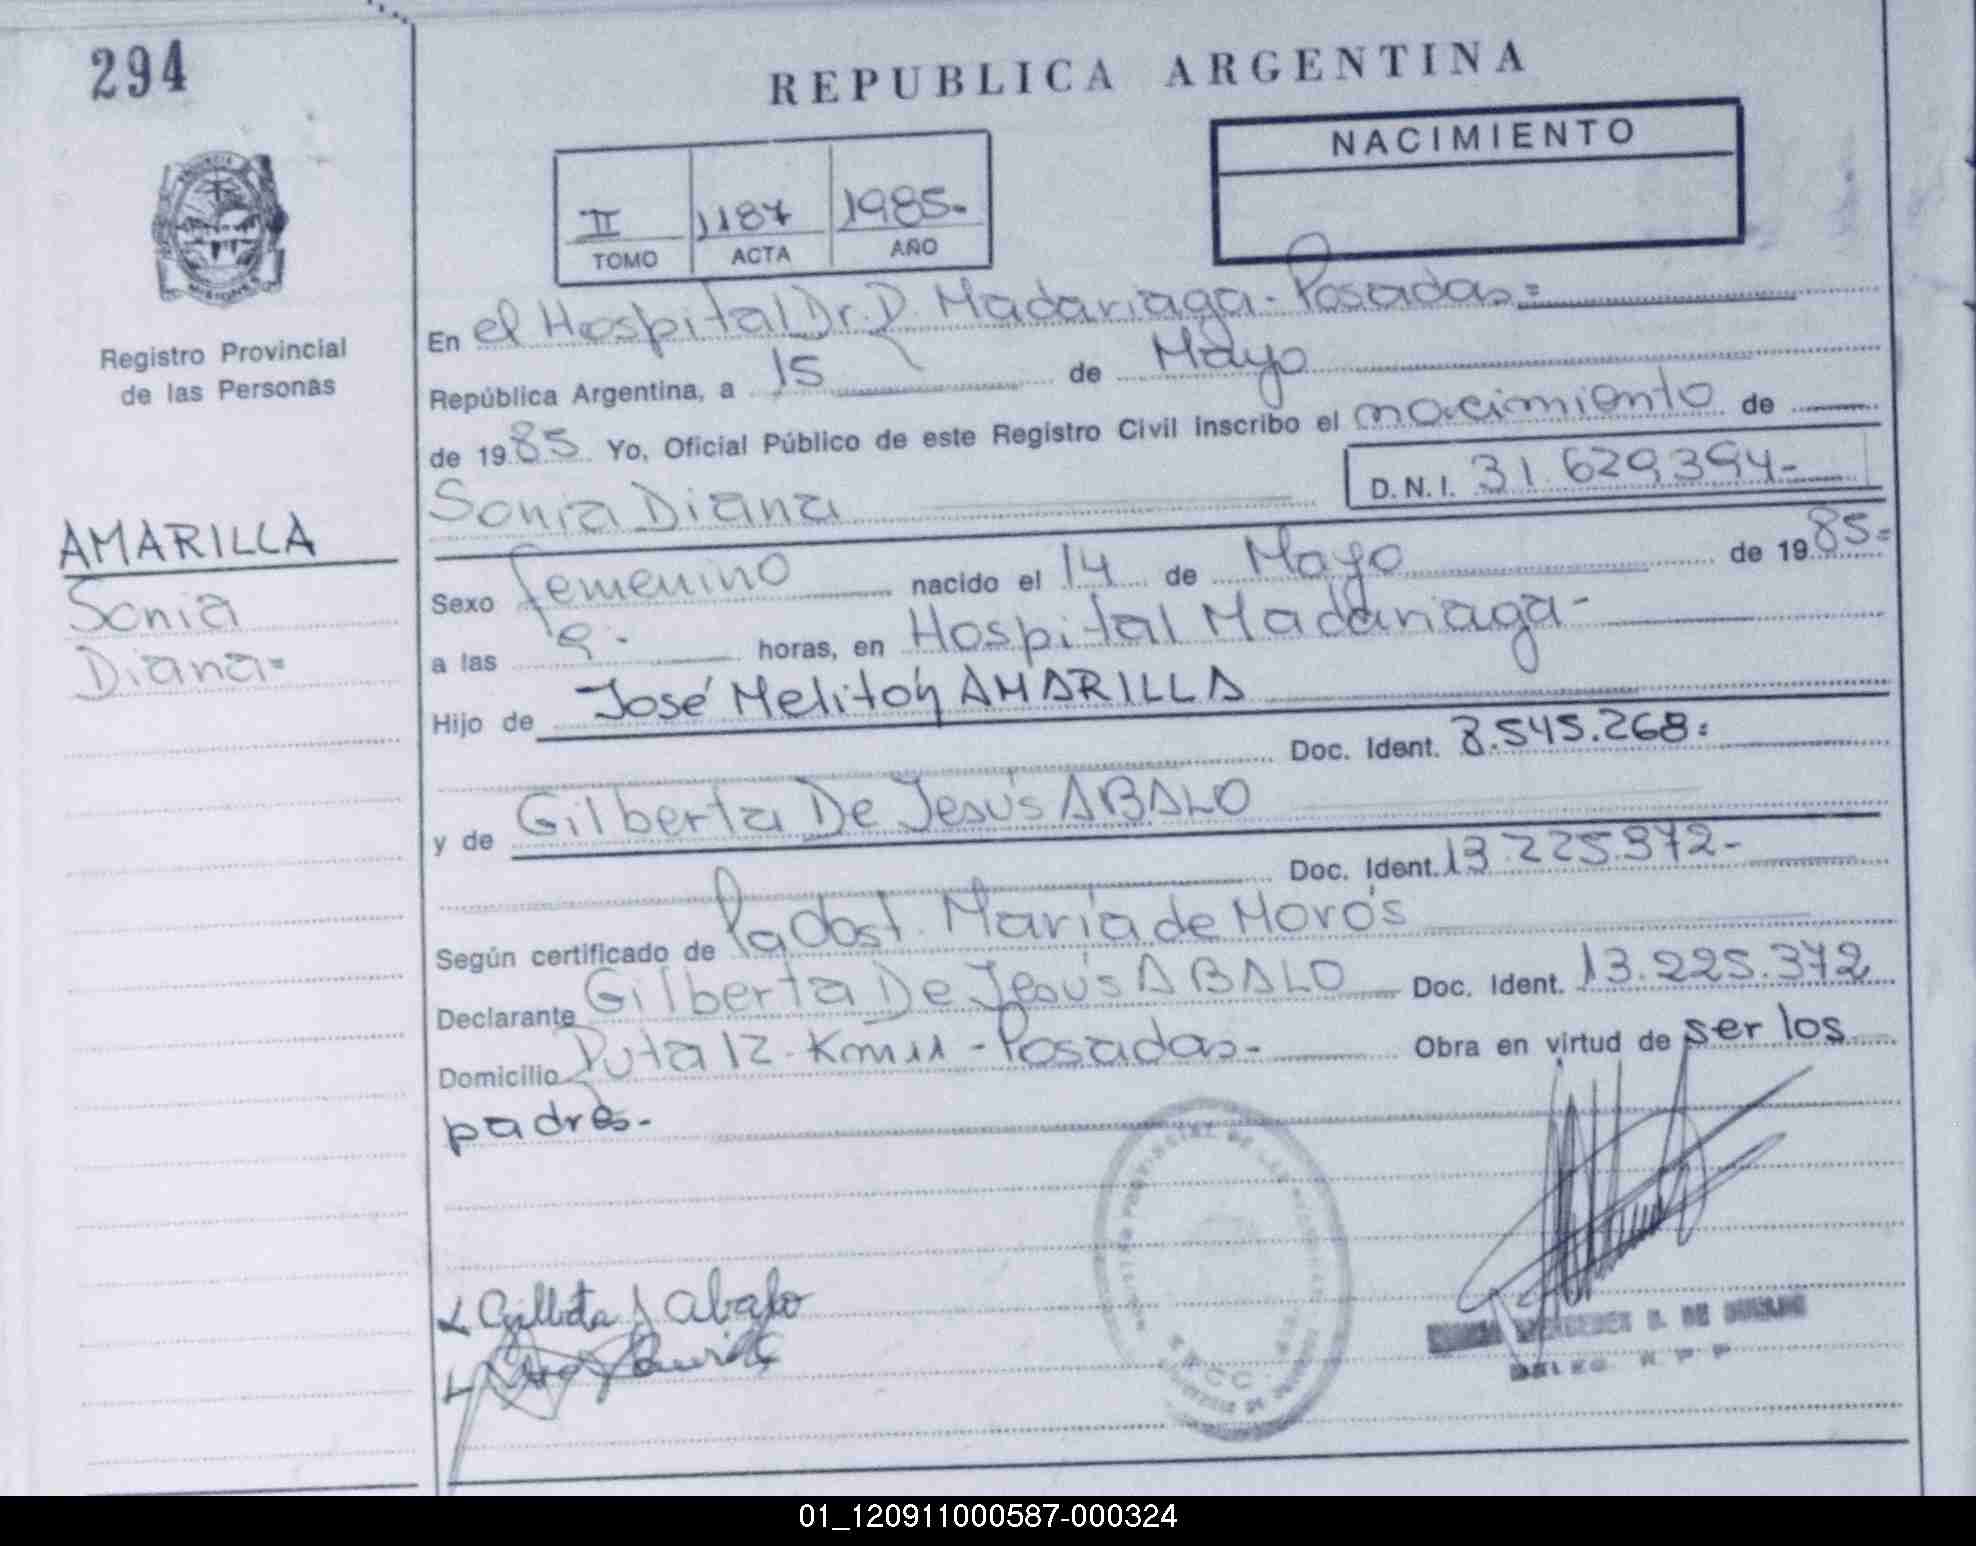 294
REPUBLICA ARGENTINA
NACIMIENTO
II 1187 1985.
TOMO ACTA AÑO
Registro Provincial
de las Personas
AMARILLA
Sonia
Diana=
En el Hospital Dr. D. Madariaga - Posadas =
República Argentina, a 15 de Mayo
de 1985 Yo, Oficial Público de este Registro Civil inscribo el nacimiento de
Sonia Diana D.N.I. 31.629.394-
Sexo femenino nacido el 14 de Mayo de 1985=
a las 9. horas, en Hospital Madariaga-
Hijo de José Melitón AMARILLA
Doc. Ident. 8.545.268=
y de Gilberta De Jesús ABALO
Doc. Ident. 13.225.372-
Según certificado de la Obst. María de Morós
Declarante Gilberta De Jesús ABALO Doc. Ident. 13.225.372
Domicilio Ruta 12 - Km 11 - Posadas- Obra en virtud de ser los
padres-
Gilberta J Abalo
DELEG. R P P
01_120911000587-000324